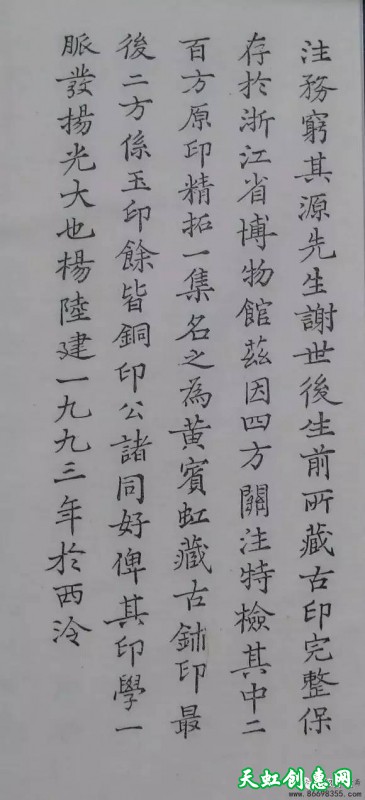 注務窮其源先生謝世後生前所藏古印完整保
存於浙江省博物館茲因四方關注特檢其中二
百方原印精拓一集名之為黃賓虹藏古鉨印最
後二方係玉印餘皆銅印公諸同好俾其印學一
脈發揚光大也楊陸建一九九三年於西泠
天虹创意网
www.86698355.com